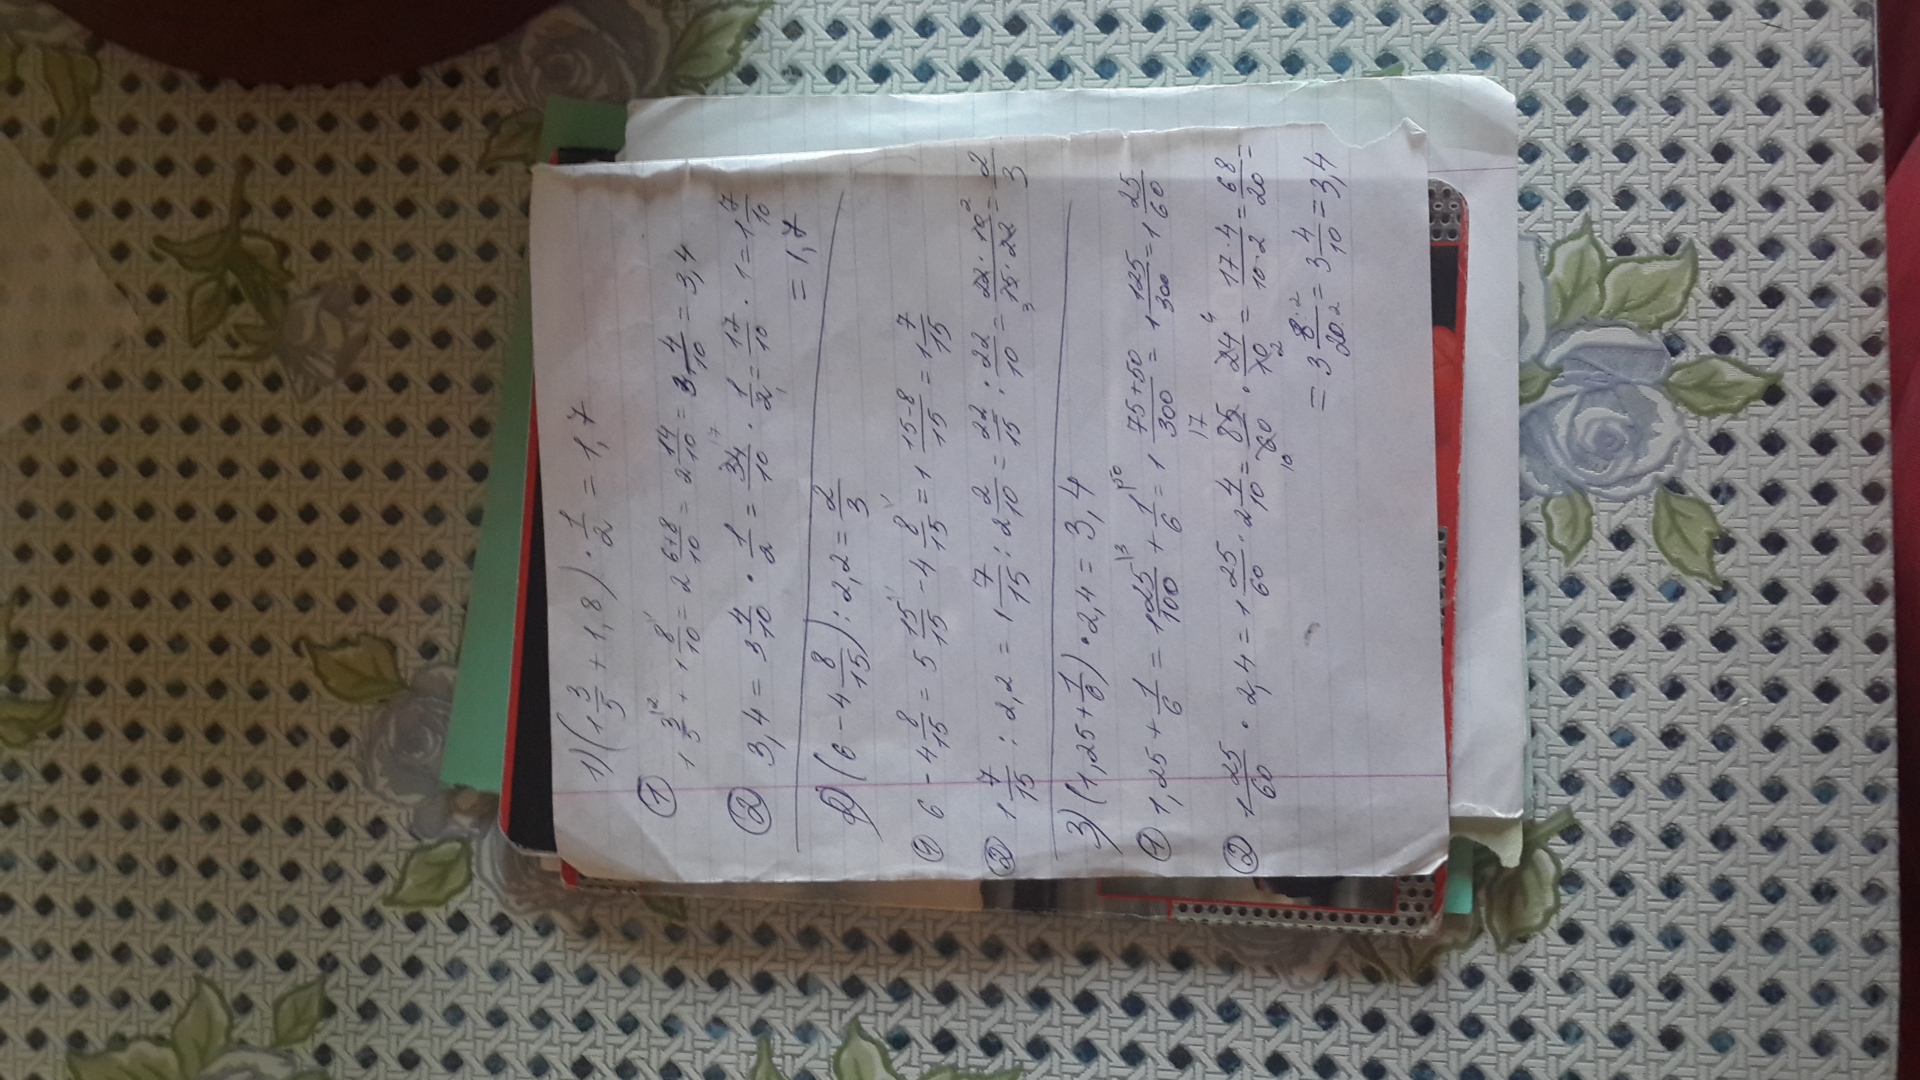 1) (1 3/5 + 1,8) · 1/2 = 1,7
① 1 3/5 |2 + 1 8/10 |1 = 2 6+8/10 = 2 14/10 = 3 4/10 = 3,4
② 3,4 = 3 4/10 · 1/2 = 34 17/10 · 1/2 1 = 17/10 · 1 = 1 7/10
= 1,7
2) (6 - 4 8/15) : 2,2 = 2/3
① 6 - 4 8/15 = 5 15/15 |1 - 4 8/15 |1 = 1 15-8/15 = 1 7/15
② 1 7/15 : 2,2 = 1 7/15 : 2 2/10 = 22/15 : 22/10 = 22 · 10 2/3 15 · 22 = 2/3
3) (1,25 + 1/6) · 2,4 = 3,4
① 1,25 + 1/6 = 1 25/100 |3 + 1/6 |50 = 1 75+50/300 = 1 125/300 = 1 25/60
② 1 25/60 · 2,4 = 1 25/60 · 2 4/10 = 17 85/60 10 · 24 4/10 2 = 17·4/10·2 = 68/20 =
= 3 8:2/20:2 = 3 4/10 = 3,4